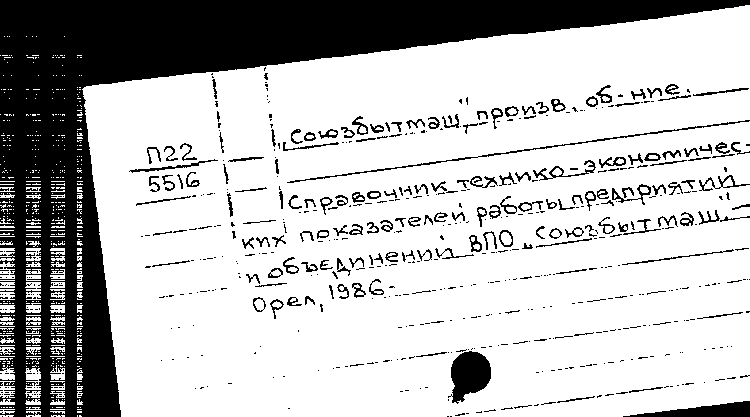 П22
5516
„Союзбытмаш", произв. об-ние.
Справочник технико-экономичес-
ких показателей работы предприятий
и объединений ВПО „Союзбытмаш".-
Орел, 1986.